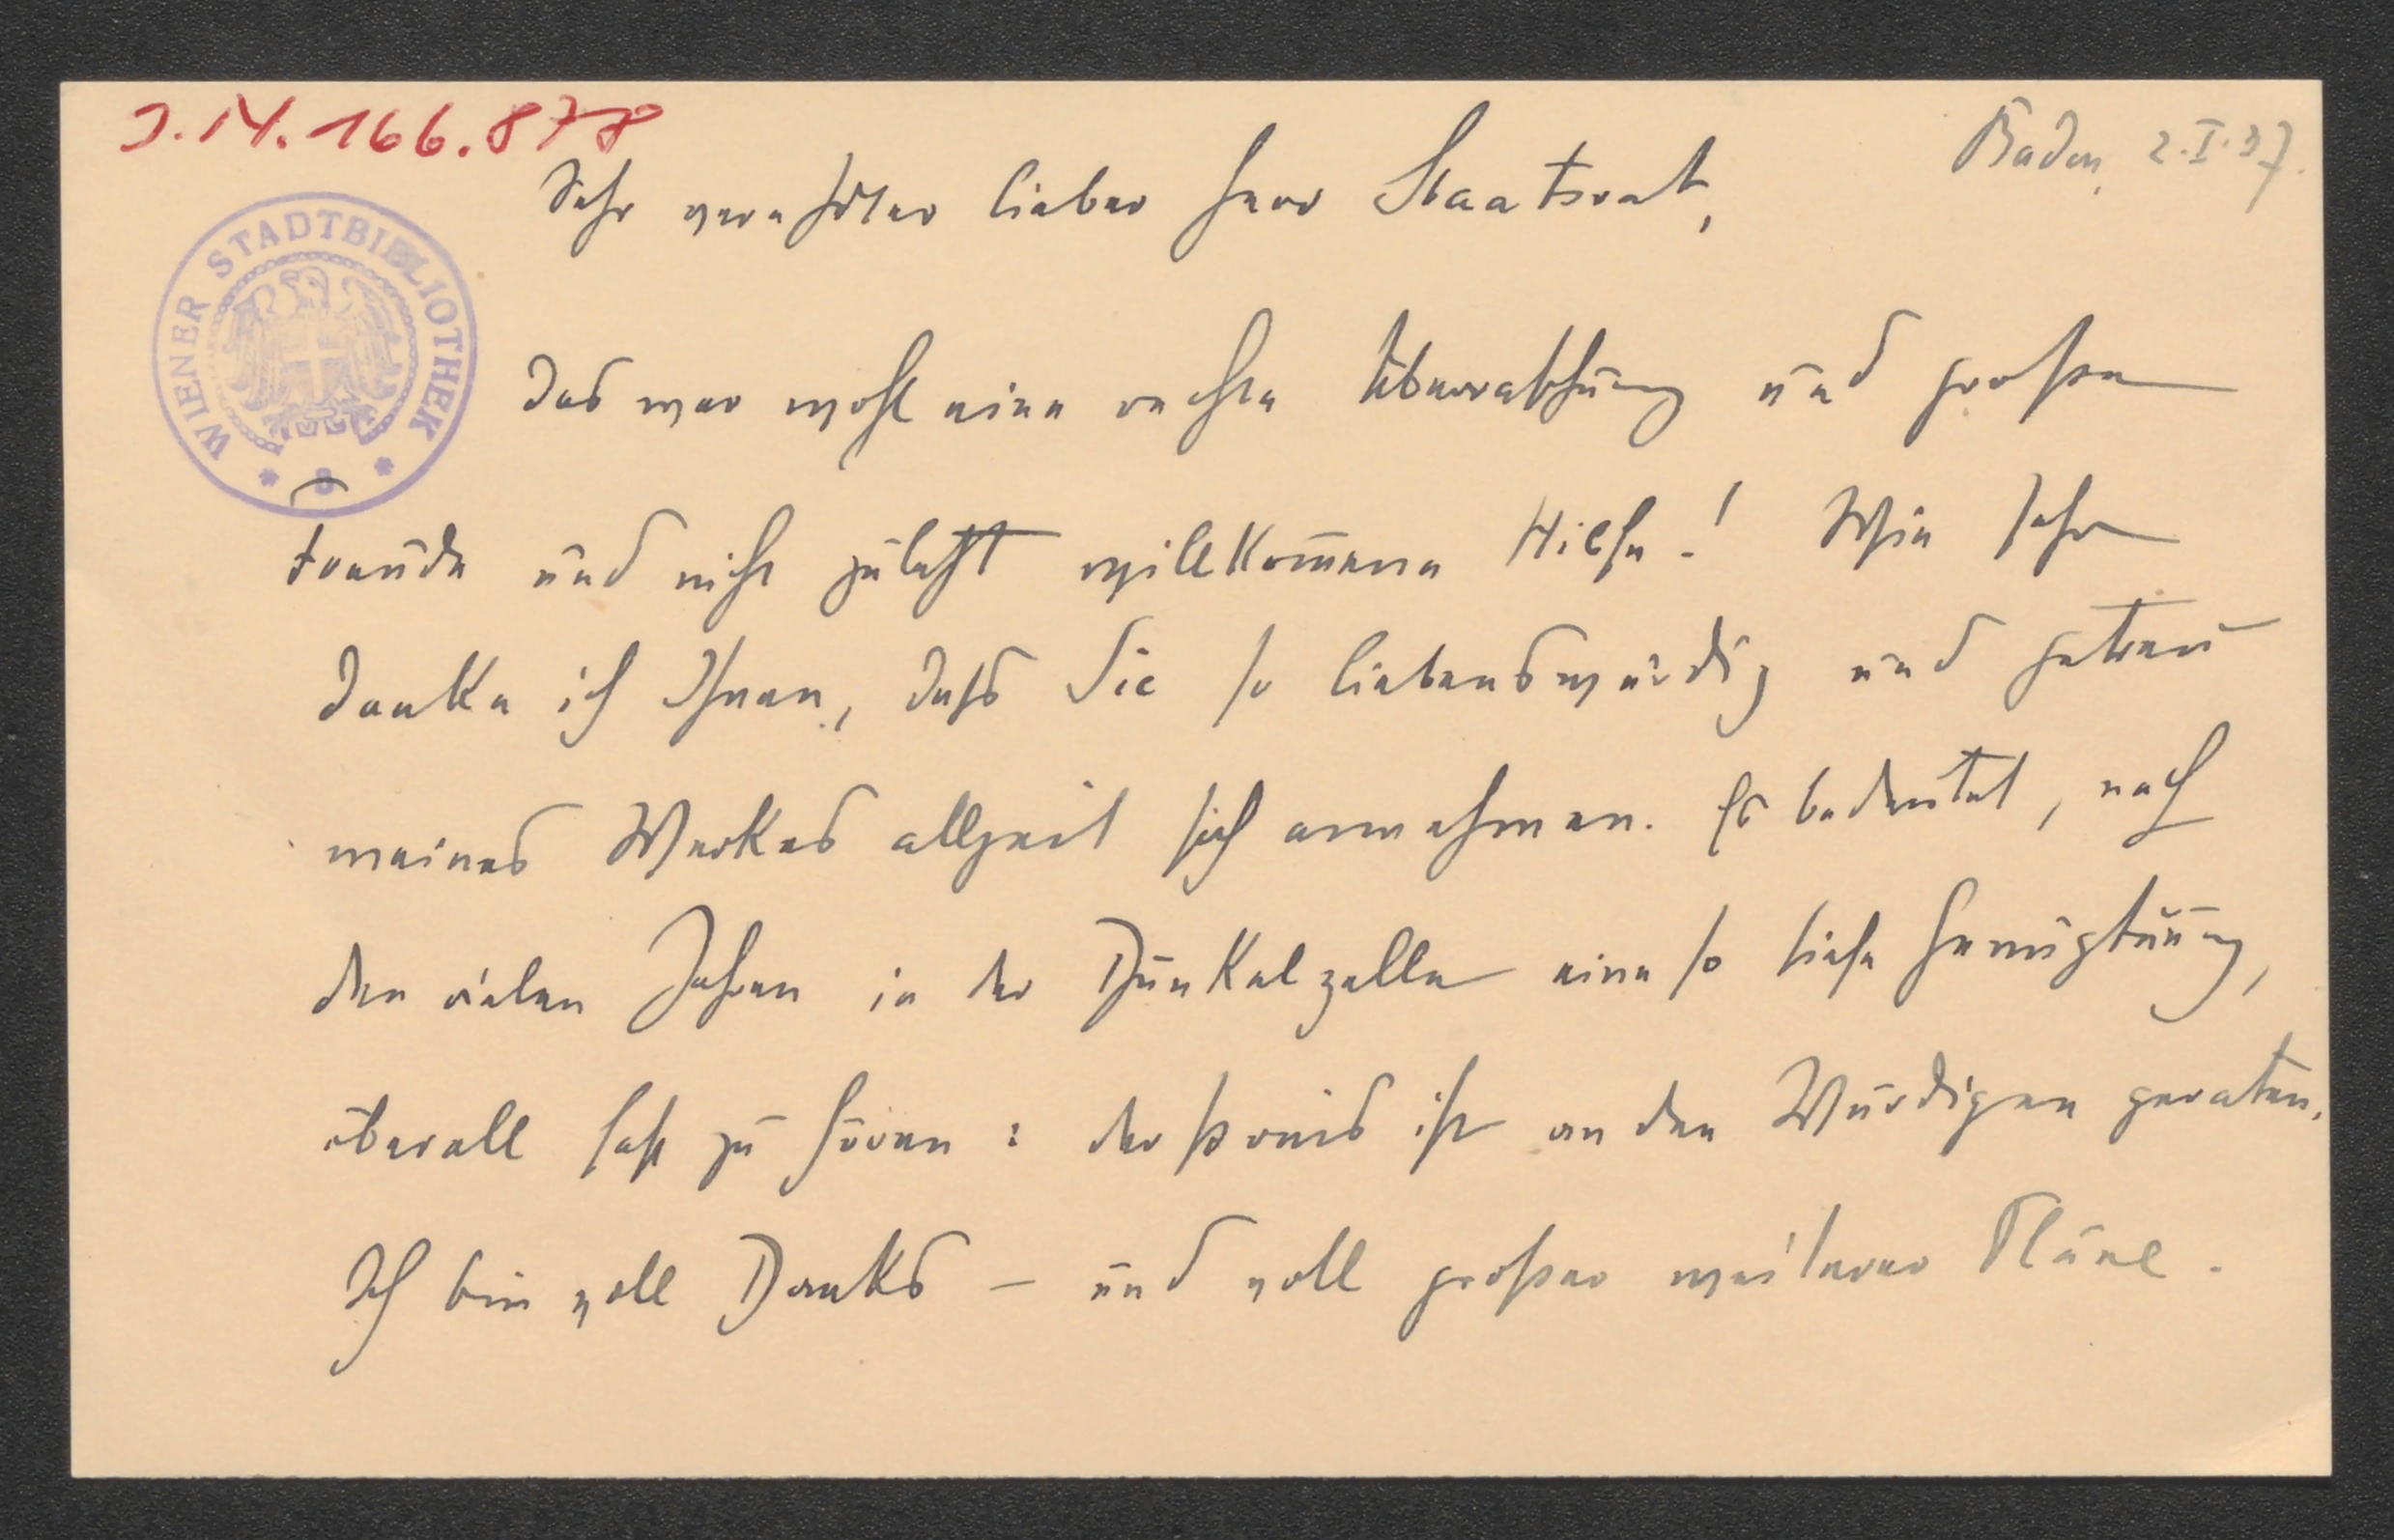 J.N. 166.878
Baden, 2.I.37.
WIENER STADTBIBLIOTHEK
Sehr verehrter lieber Herr Staatsrat,
Das war wohl eine rechte Überraschung und große
Freude und nicht zuletzt willkom̅ene Hilfe! Wie sehr
danke ich Ihnen, dass Sie so liebenswürdig und getreu
meines Werkes allzeit sich annehmen. Es bedeutet, nach
den vielen Jahren in der Dunkelzelle eine so tiefe Genugtuung,
überall fast zu hören: der Preis ist an den Würdigen geraten.
Ich bin voll Danks – und voll großer weiterer Pläne.